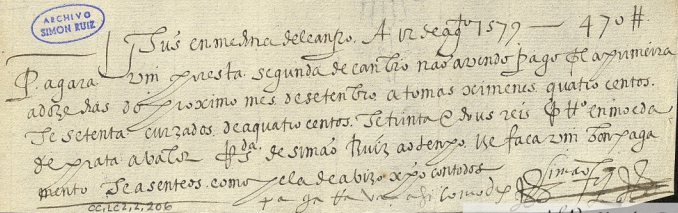 ARCHIVO
SIMON RUIZ
Jhus en medina del canpo. A 12 de agto 1579 — 470 #
Pagara vm por esta segunda de canbio não avendo pago pla primeira
a doze dias do proximo mes de setenbro a tomas ximenes quatro centos
e setenta cruzados de a quatro centos setinta e dous reis en moeda
de prata a valor de simão Ruiz ao tenpo lhe faca vm bon paga
mento e asenteos como pela de avizo xpo con todos
simão
CC,LC,2,2,206